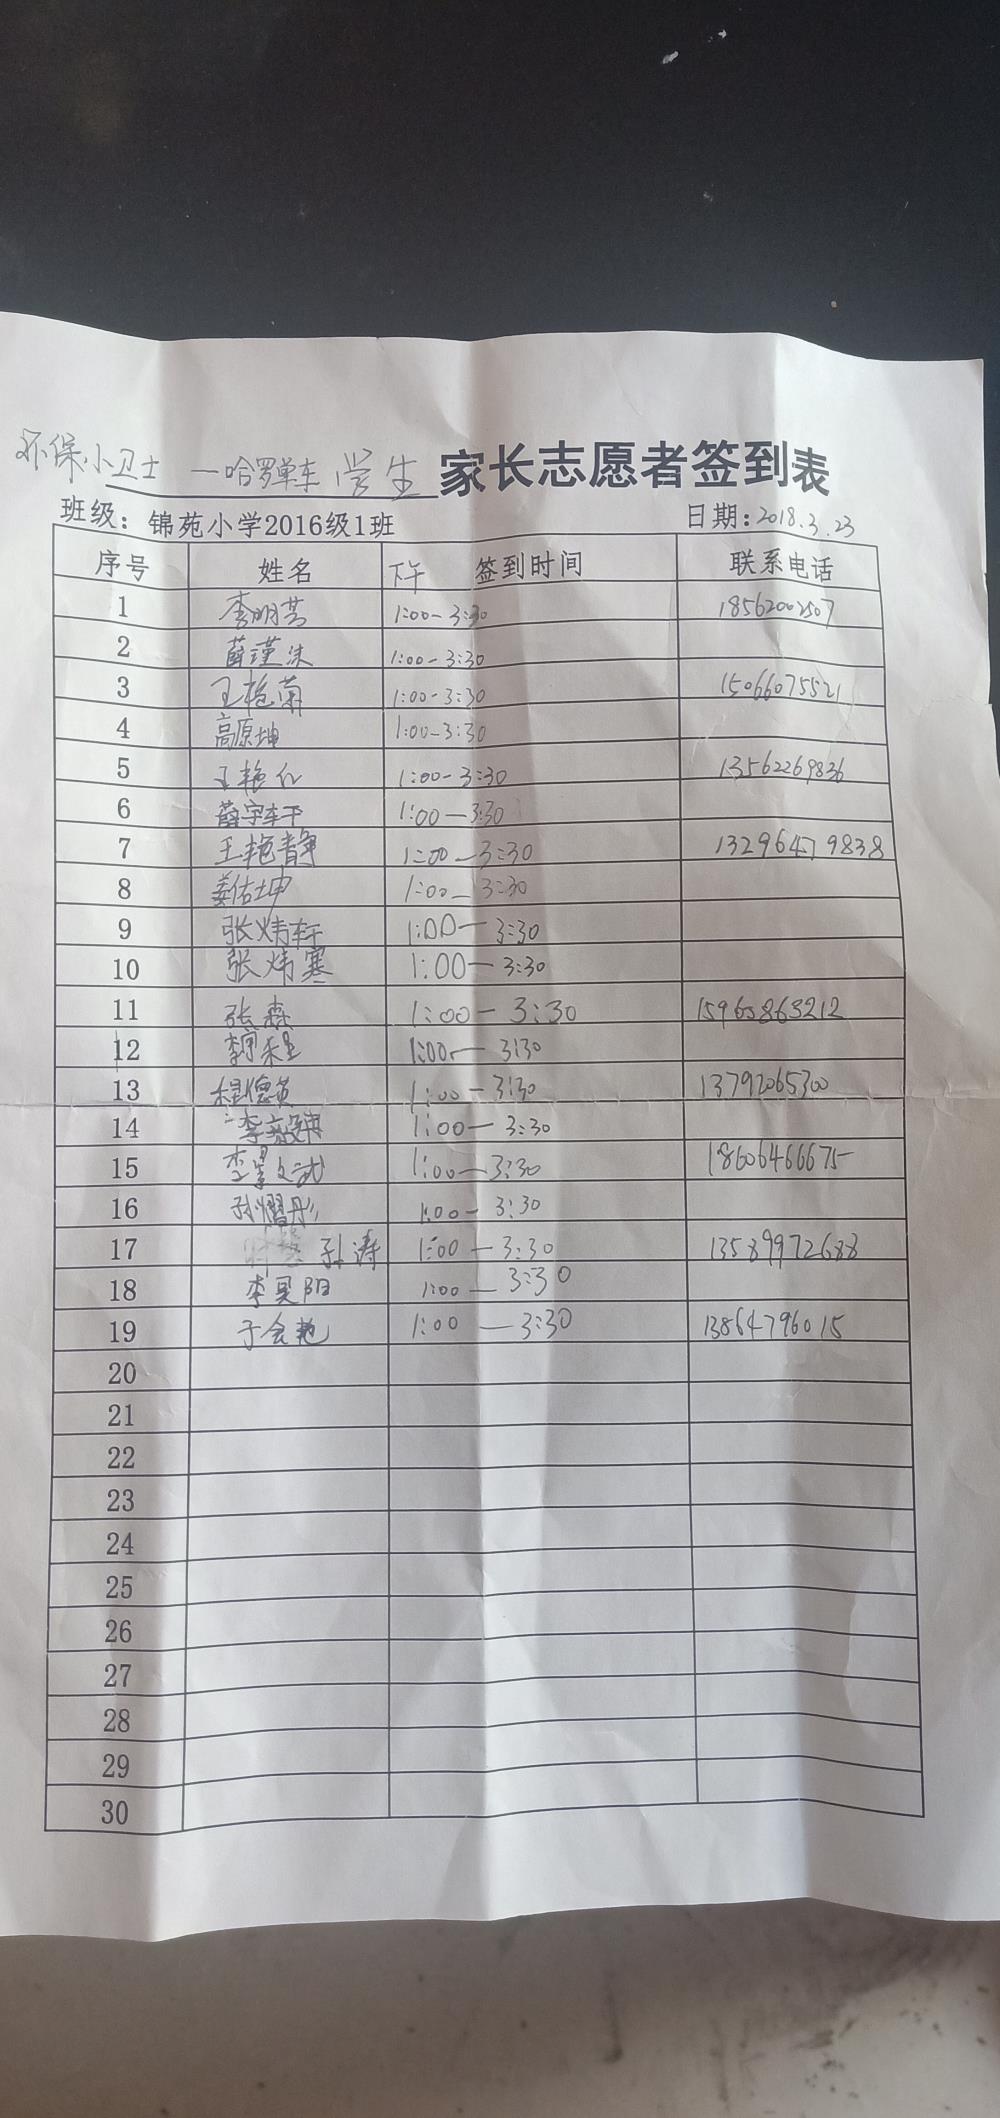 环保小卫士 一哈罗单车 学生 家长志愿者签到表
班级：锦苑小学2016级1班 日期：2018.3.23
序号 姓名 下午 签到时间 联系电话
1 李明芸 1:00-3:30 18562002507
2 薛瑾沫 1:00-3:30
3 王艳菊 1:00-3:30 15066075521
4 高原坤 1:00-3:30
5 王艳红 1:00-3:30 13562269836
6 薛宇轩 1:00-3:30
7 王艳静 1:00-3:30 13296479838
8 姜佑坤 1:00-3:30
9 张炜轩 1:00-3:30
10 张炜寒 1:00-3:30
11 张森 1:00-3:30 15965863212
12 1:00-3:30
13 程德英 1:00-3:30 13792065300
14 1:00-3:30
15 李景文武 1:00-3:30 18606466675
16 孙熠彤 1:00-3:30
17 孙涛 1:00-3:30 13589972688
18 李昊阳 1:00-3:30
19 于会艳 1:00-3:30 13864796015
20
21
22
23
24
25
26
27
28
29
30